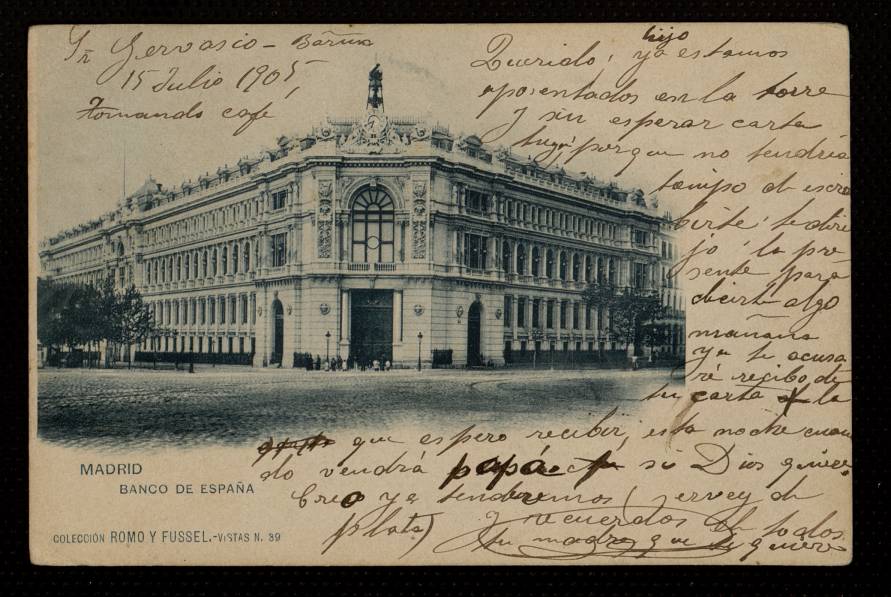 Sr Gervasio - Barna
15 Julio 1905
Tomando café
Querido hijo ya estamos
aposentados en la torre
y sin esperar carta
tuya porque no tendria
tiempo de escri
birte, te diri
jo, la pre
sente para
decirte algo
mañana
ya te acusa
ré recibo de
tu carta la
que espero recibir, esta noche cuan
do vendrá papá si Dios quiere.
Creo ya tendremos (servey de
plata) y recuerdos de todos
tu madre que te quiere
MADRID
BANCO DE ESPAÑA
COLECCIÓN ROMO Y FUSSEL.-VISTAS N. 39